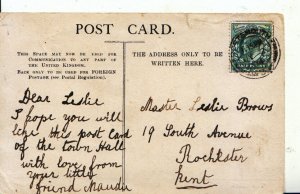 POST CARD.
THIS SPACE MAY NOW BE USED FOR
COMMUNICATION TO ANY PART OF
THE UNITED KINGDOM.
BACK ONLY TO BE USED FOR FOREIGN
POSTAGE (see Postal Regulation).
THE ADDRESS ONLY TO BE
WRITTEN HERE.
Dear Leslie
I hope you will
like this post Card
of the town Hall
with love from
your little
friend Maudie
Master Leslie Brows
19 South Avenue
Rochester
Kent